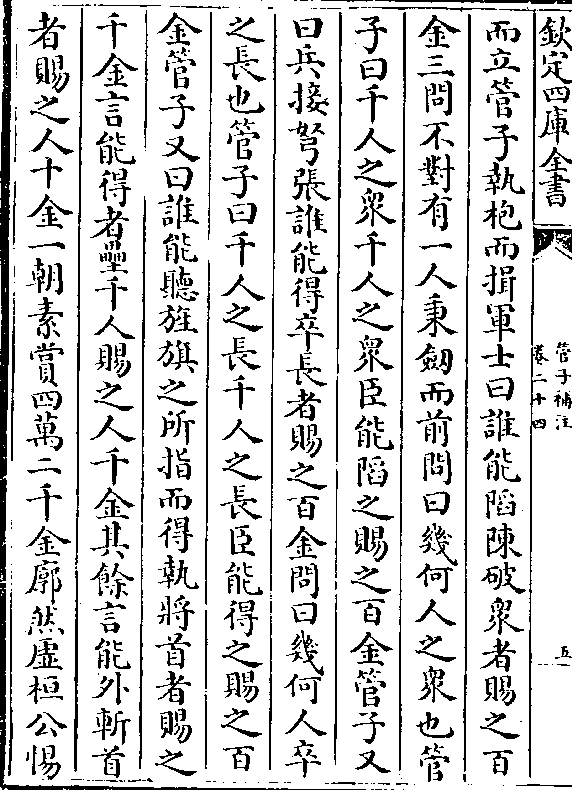 欽定四庫全書
管子補注
卷二十四
五
而立管子執枹而揖軍士曰誰能陷陳破衆者賜之百
金三問不對有一人秉劔而前問曰幾何人之衆也管
子曰千人之衆千人之衆臣能陷之賜之百金管子又
曰兵接弩張誰能得卒長者賜之百金問曰幾何人卒
之長也管子曰千人之長千人之長臣能得之賜之百
金管子又曰誰能聽旌旗之所指而得執將首者賜之
千金言能得者壘千人賜之人千金其餘言能外斬首
者賜之人十金一朝素賞四萬二千金廓然虛桓公惕